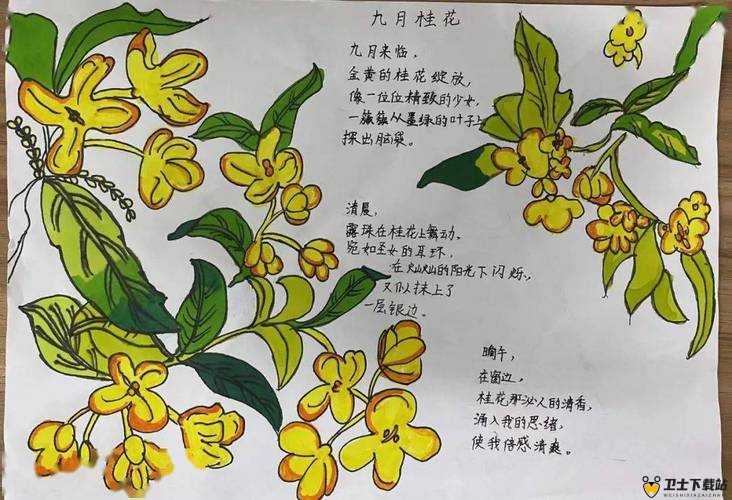 九月桂花
九月来临,
金黄的桂花绽放,
像一位位精致的少女,
一簇簇从墨绿的叶子上
探出脑袋。
清晨,
露珠在桂花上舞动。
宛如圣女的耳环,
在灿灿的阳光下闪烁,
又似抹上了
一层银边。
晌午,
在窗边,
桂花那沁人的清香,
涌入我的思绪,
使我倍感清爽。
卫士下载站
WEISHIXIAZAIZHAN